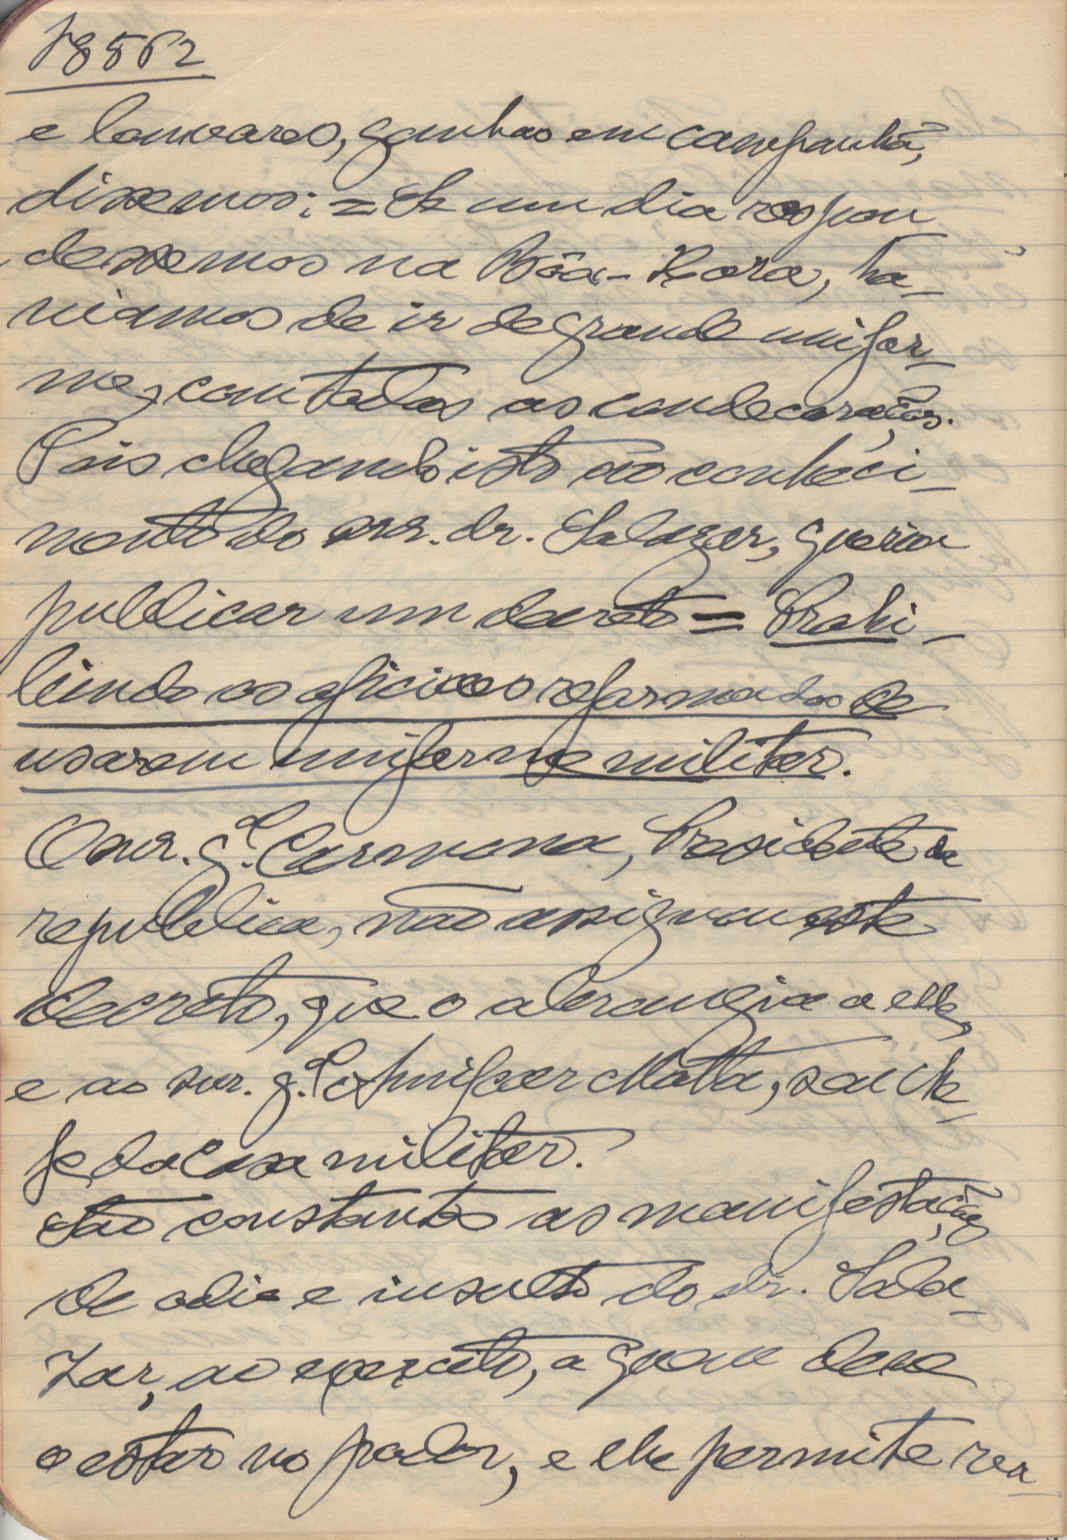 18562
e louvores, ganhas em campanhã,
dissemos: = Se um dia respon
dessemos na Bôa-Hora, ha-
viamos de ir de grande unifor-
me, com todas as condecorações.
Pois chegando isto ao conheci-
mento do snr. dr. Salazar, queria
publicar um decreto = Prohi-
bindo os oficiaes reformados de
usarem uniforme militar.
O snr. g.al Carmona, Presidente da
republica, não assignou este
decreto, que o abrangia a elle,
e ao snr. g.al Amilcar Motta, seu che-
fe da Casa militar.
São constantes as manifestações
de odio e insulto do dr. Sala-
zar, ao exercito, a quem deve
o estar no poder, e elle permite rea-